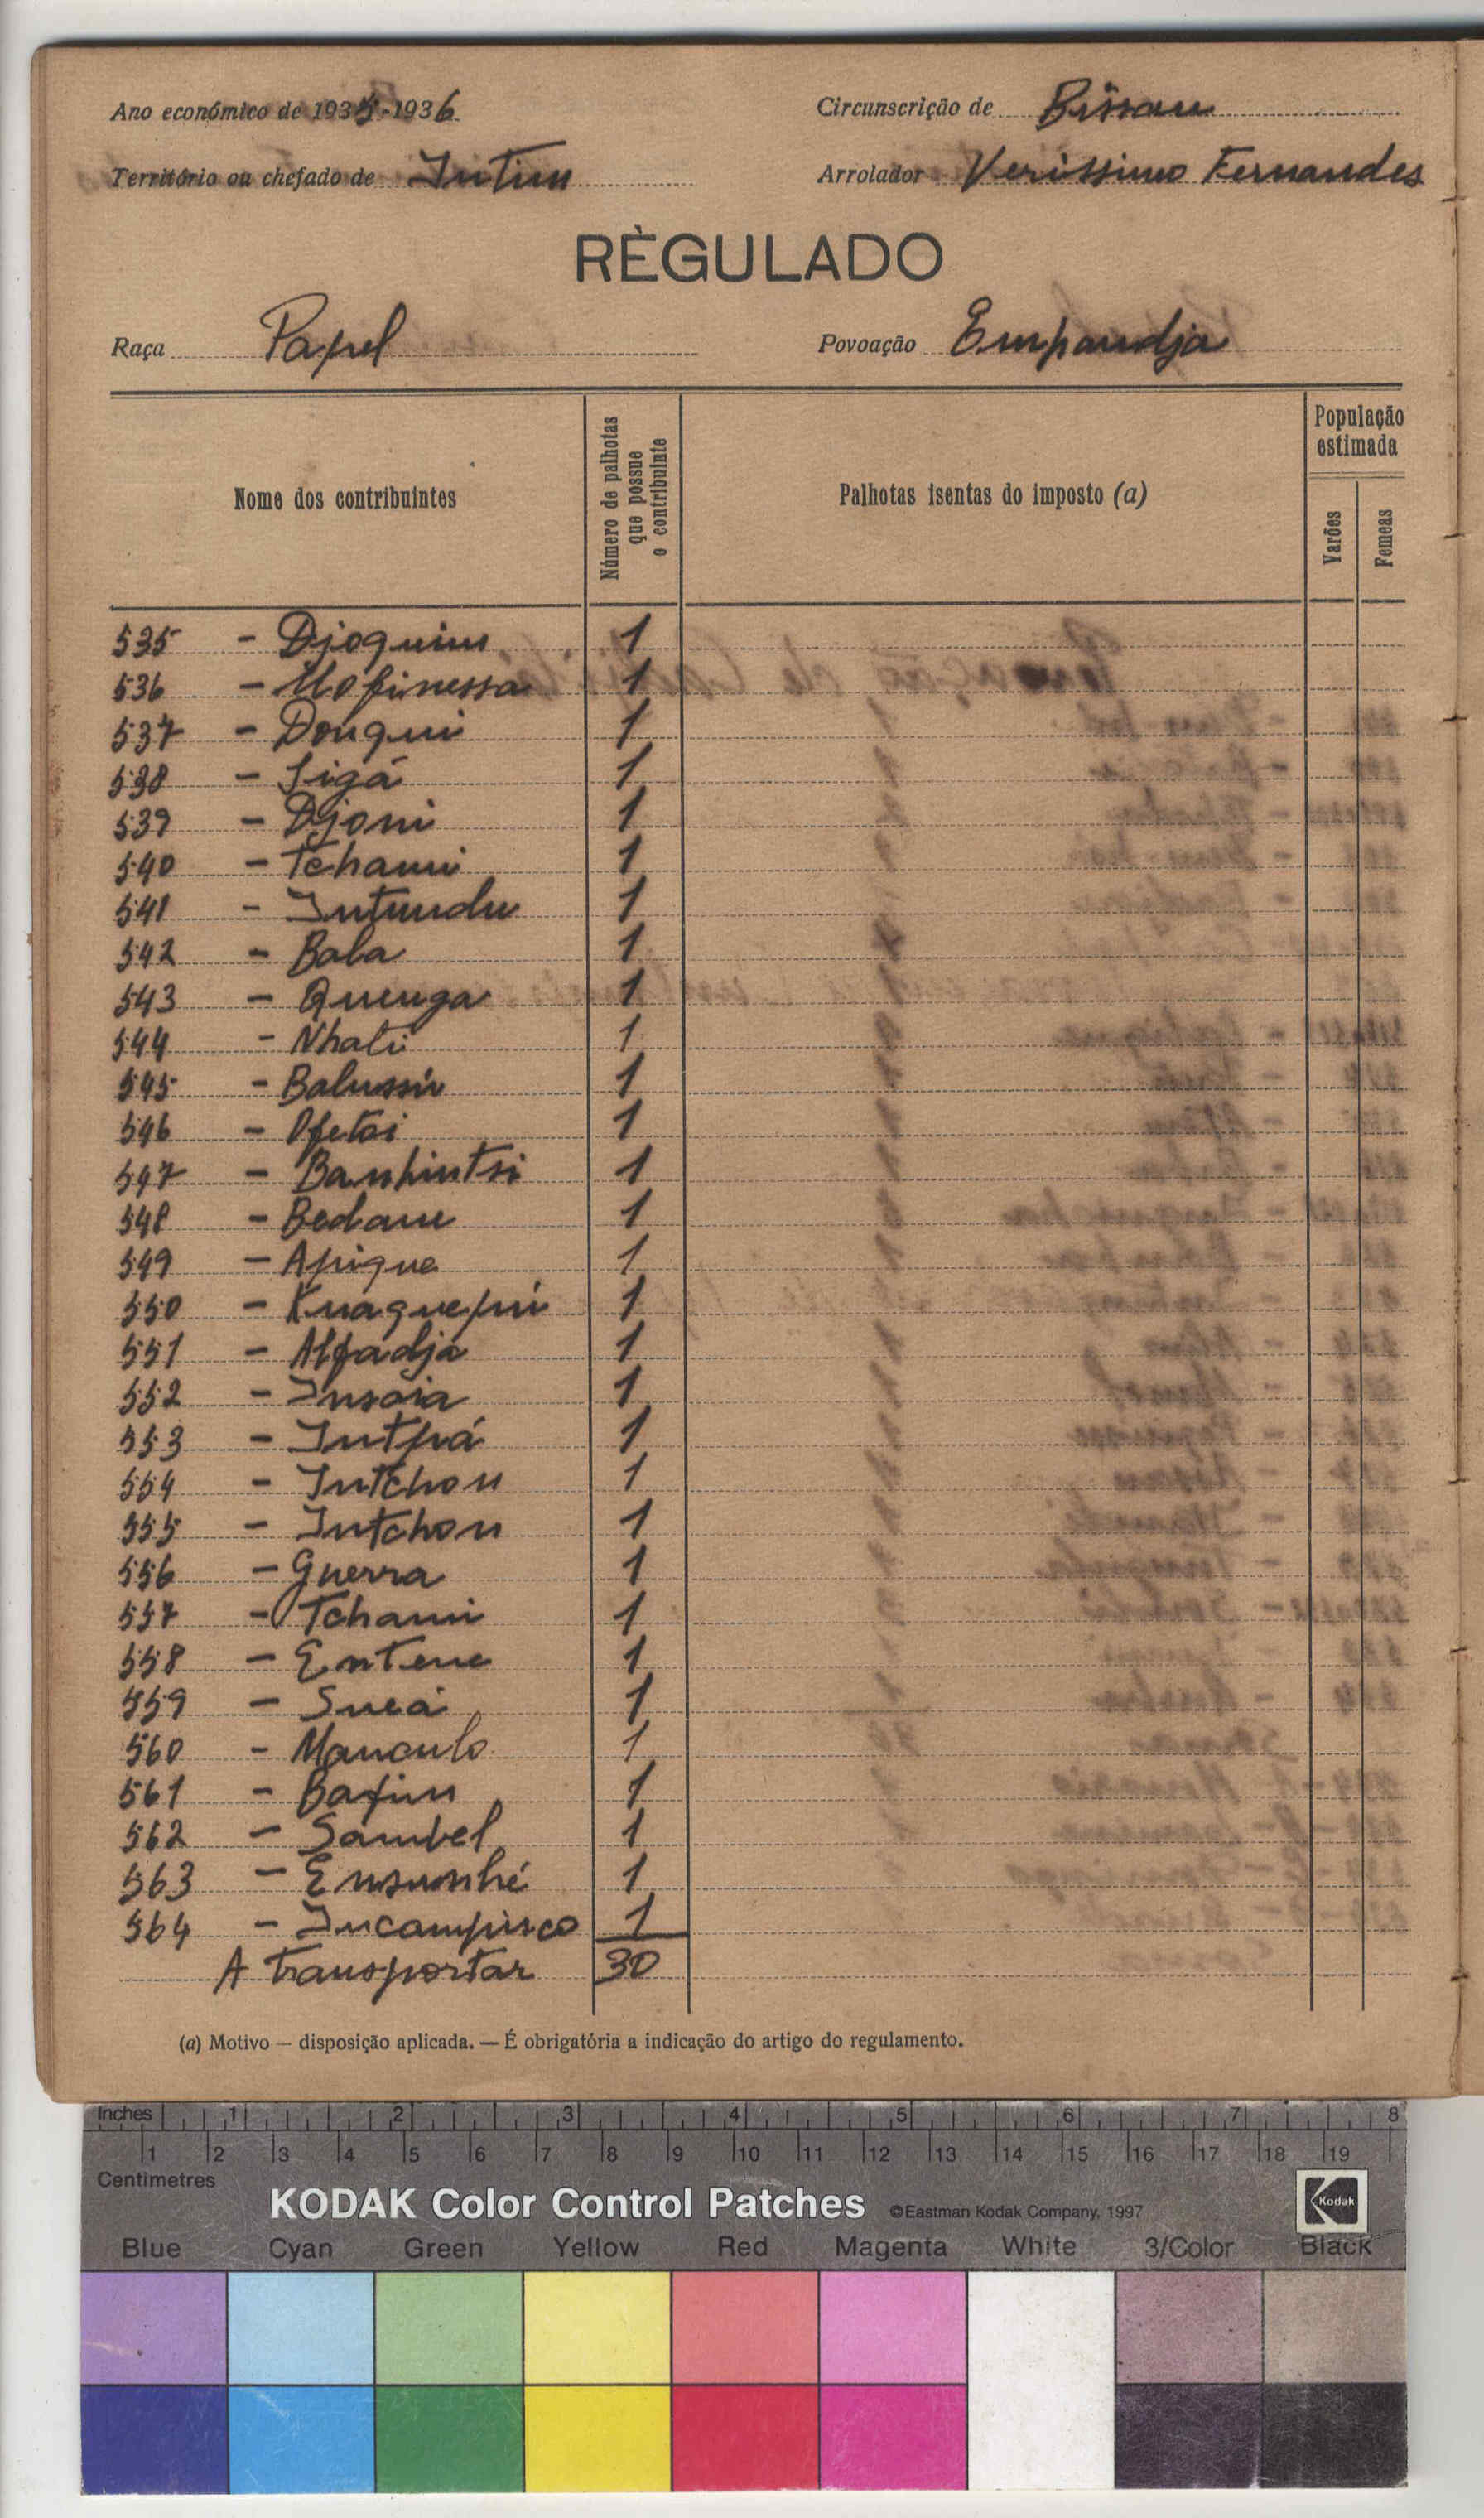 Ano económico de 1935-1936
Circunscrição de Bissau
Território ou chefado de Intim
Arrolador Verissimo Fernandes
RÈGULADO
Raça Papel
Povoação Empandja
Nome dos contribuintes
Número de palhotas que possue o contribuinte
Palhotas isentas do imposto (a)
População estimada
Varões
Femeas
535 - Djoquim 1
536 - Mofinessa 1
537 - Donqui 1
538 - Sigá 1
539 - Djoni 1
540 - Tchami 1
541 - Intundu 1
542 - Bala 1
543 - Quenga 1
544 - Nhati 1
545 - Balussir 1
546 - Ofetoi 1
547 - Banhintsi 1
548 - Bedane 1
549 - Apique 1
550 - Knaquepui 1
551 - Alfadja 1
552 - Insoia 1
553 - Intpá 1
554 - Intchon 1
555 - Intchon 1
556 - Guerra 1
557 - Tchami 1
558 - Entene 1
559 - Sucá 1
560 - Manculo 1
561 - Bafim 1
562 - Sambel 1
563 - Ensunhé 1
564 - Incampisco 1
A transportar 30
(a) Motivo — disposição aplicada. — É obrigatória a indicação do artigo do regulamento.
Inches 1 2 3 4 5 6 7 8
1 2 3 4 5 6 7 8 9 10 11 12 13 14 15 16 17 18 19
Centimetres
KODAK Color Control Patches ©Eastman Kodak Company, 1997 Kodak
Blue Cyan Green Yellow Red Magenta White 3/Color Black